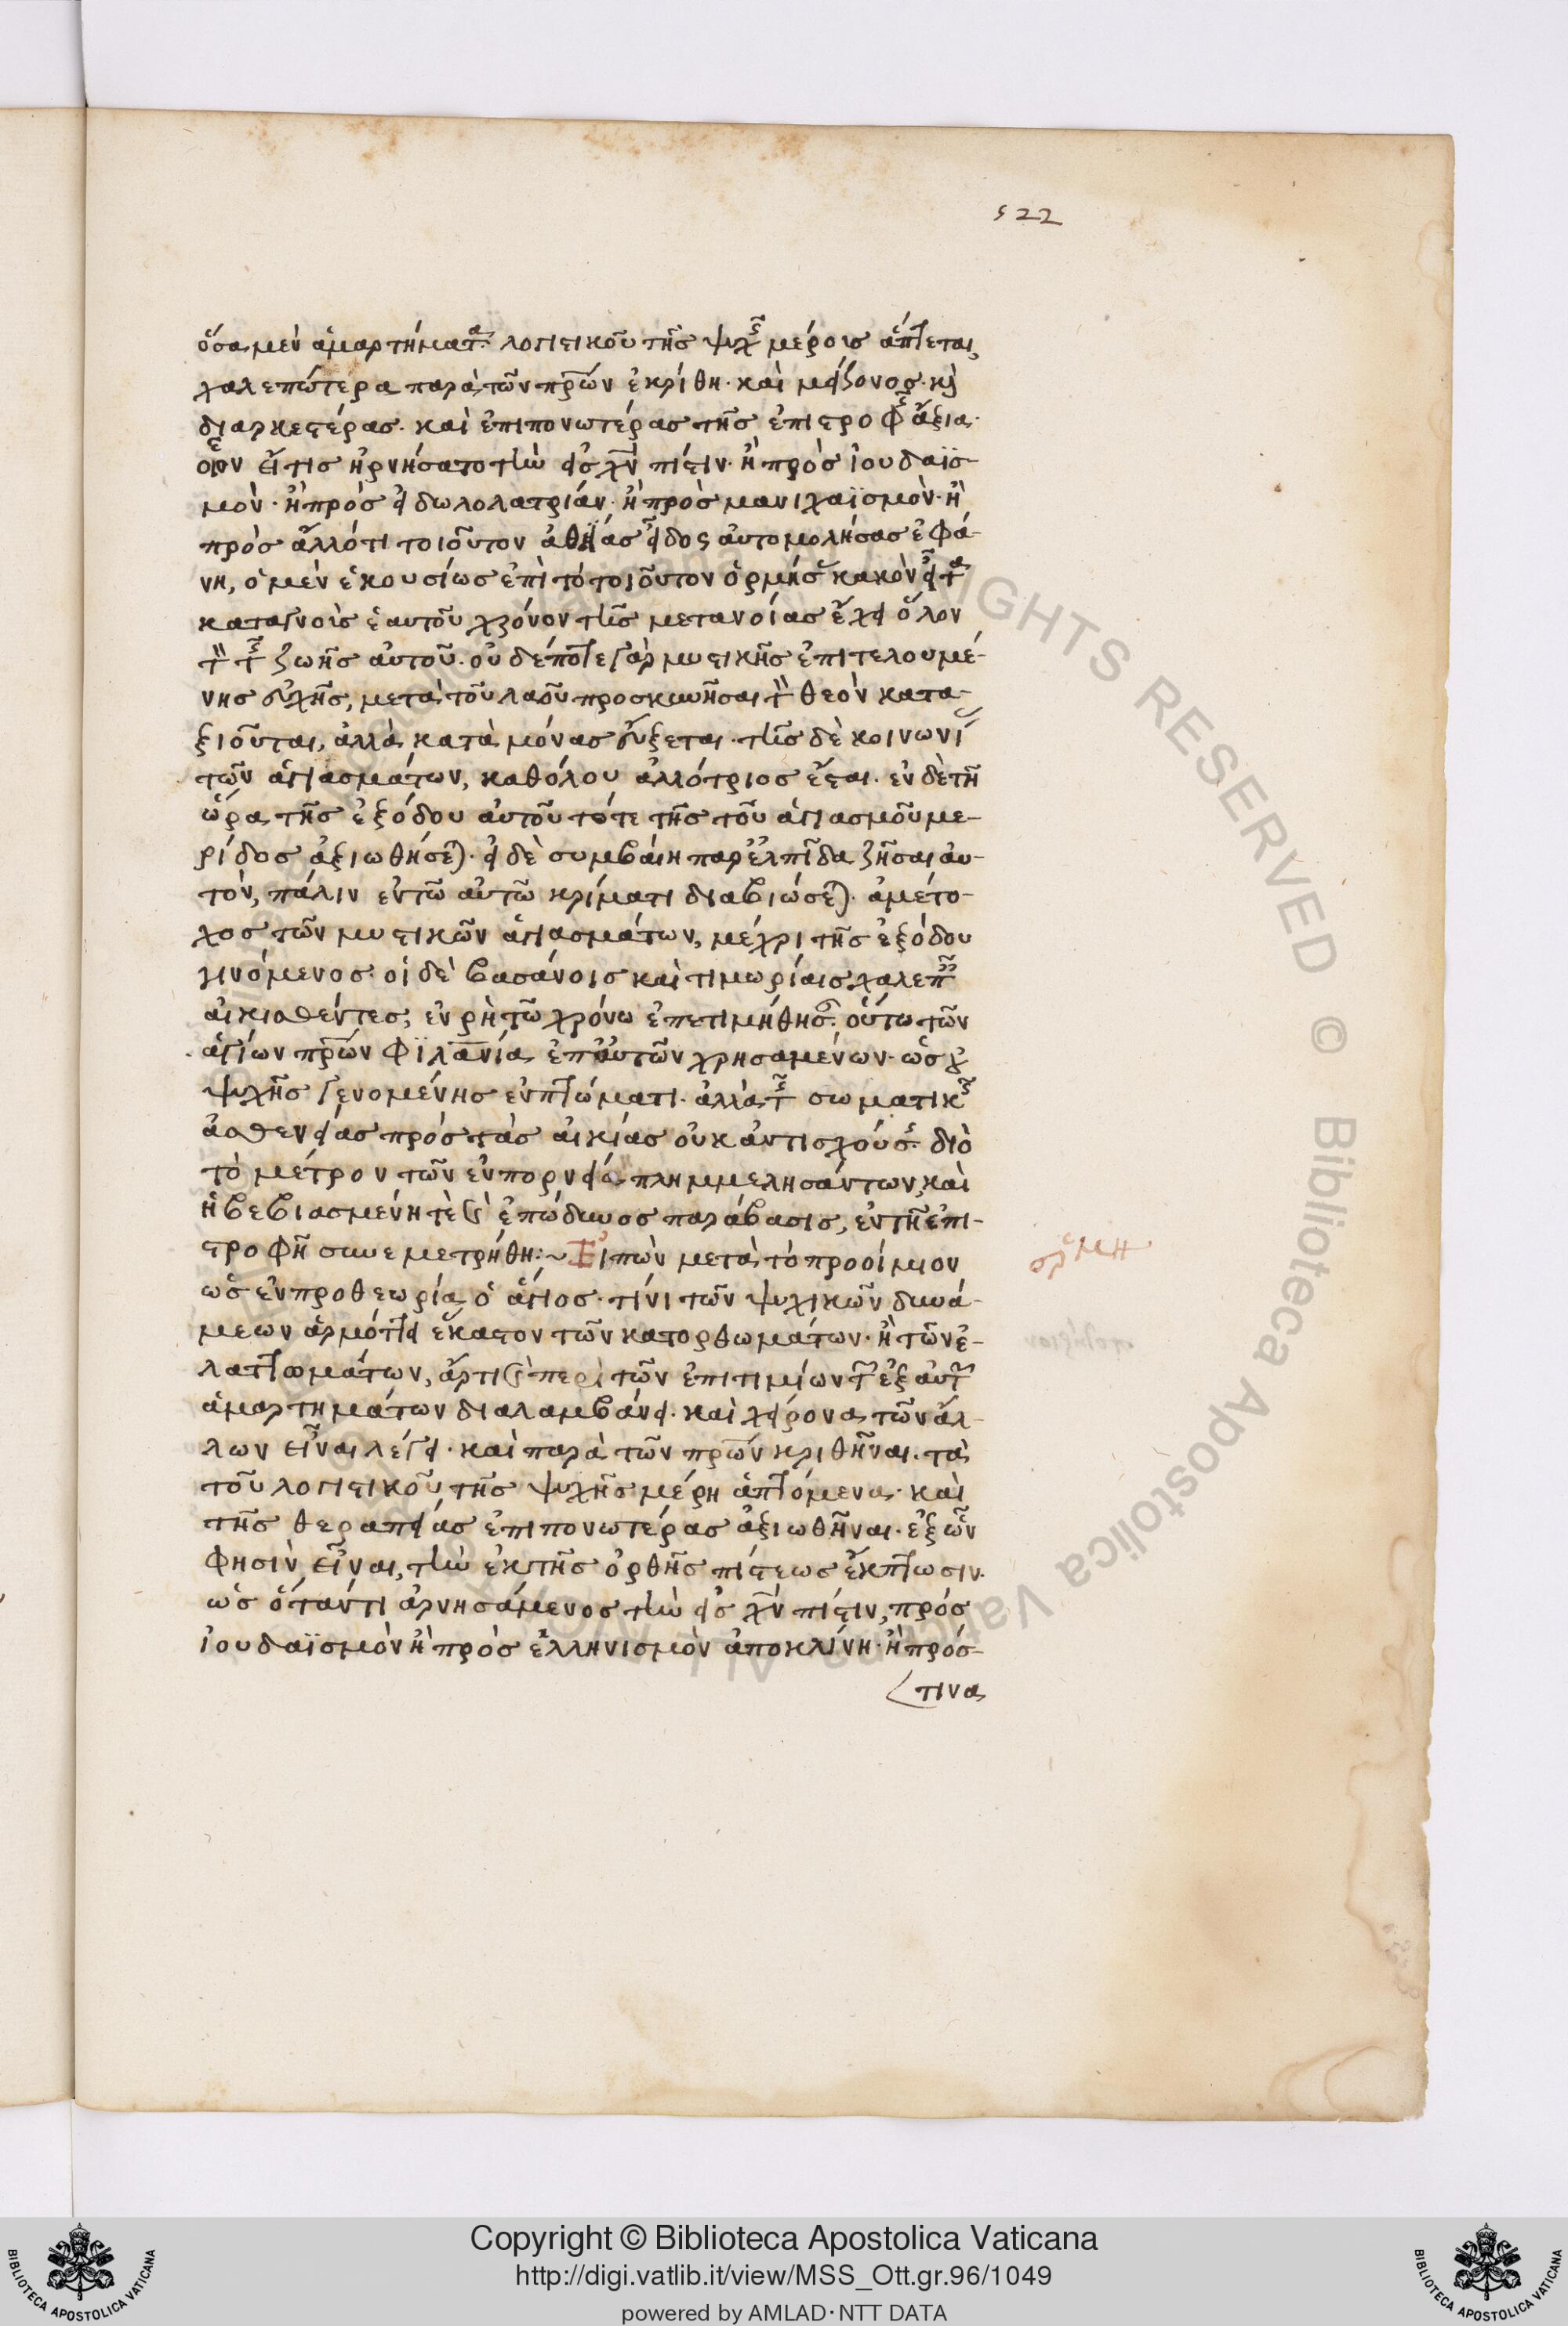 522
ὅσα μὲν ἁμαρτήματα λογιστικοῦ τῆς ψυχῆς μέροις ἅπτεται,
χαλεπώτερα παρὰ τῶν πρῶν ἐκρίθη· καὶ μείζονος· κὶ
διαρκεστέρας· καὶ ἐπιπονωτέρας τῆς ἐπιστροφῆς ἄξια·
οἷον εἴ τις ἠρνήσατο τὴν εἰς χν πίστιν· ἢ πρὸς ἰουδαϊσ-
μὸν· ἢ πρὸς εἰδωλολατρίαν· ἢ πρὸς μανιχαϊσμὸν· ἢ
πρὸς ἄλλό τι τοιοῦτον ἀθεΐας εἶδος αὐτομολήσας ἐφά-
νη, ὁ μὲν ἑκουσίως ἐπὶ τὸ τοιοῦτον ὁρμήσας κακὸν εἶτα
καταγνοὺς ἑαυτοῦ χρόνον τῆς μετανοίας ἔχει ὅλον
τὸν τῆς ζωῆς αὐτοῦ· οὐδέποτε γὰρ μυστικῆς ἐπιτελουμέ-
νης εὐχῆς, μετὰ τοῦ λαοῦ προσκυνῆσαι τὸν θεὸν κατα-
ξιοῦται, ἀλλὰ κατὰ μόνας εὔξεται· τῆς δὲ κοινωνίας
τῶν ἁγιασμάτων, καθόλου ἀλλότριος ἔσται· ἐν δὲ τῇ
ὥρα τῆς ἐξόδου αὐτοῦ τότε τῆς τοῦ ἁγιασμοῦ με-
ρίδος ἀξιωθήσεται· εἰ δὲ συμβαίη παρ' ἐλπίδα ζῆσαι αὐ-
τὸν, πάλιν ἐν τῶ αὐτῶ κρίματι διαβιώσεται· ἀμέτο-
χος τῶν μυστικῶν ἁγιασμάτων, μέχρι τῆς ἐξόδου
γινόμενος· οἱ δὲ βασάνοις καὶ τιμωρίαις χαλεπαῖς
αἰκισθέντες, ἐν ρητῶ χρόνω ἐπετιμήθησαν· οὕτω τῶν
ἁγίων πρῶν φιλανία ἐπ' αὐτῶν χρησαμένων· ὡς οὐ
ψυχῆς γενομένης ἐν πτώματι· ἀλλὰ τῆς σωματικῆς
ἀσθενείας πρὸς τὰς αἰκίας οὐκ ἀντισχούσης· διὸ
τὸ μέτρον τῶν ἐν πορνεία πλημμελησάντων, καὶ
ἡ βεβιασμένη τὲ καὶ ἐπώδυνος παράβασις, ἐν τῇ ἐπι-
στροφῇ συνεμετρήθη:~ Εἰπὼν μετὰ τὸ προοίμιον
ὡς ἐν προθεωρία ὁ ἅγιος· τίνι τῶν ψυχικῶν δυνά-
μεων ἁρμόττει ἕκαστον τῶν κατορθωμάτων· ἢ τῶν ἐ-
λαττωμάτων, ἄρτι καὶ περὶ τῶν ἐπιτιμίων τῶν ἐξ αὐτῶν
ἁμαρτημάτων διαλαμβάνει· καὶ χείρονα τῶν ἄλ-
λων εἶναι λέγει· καὶ παρὰ τῶν πρῶν κριθῆναι· τὰ
τοῦ λογιστικοῦ τῆς ψυχῆς μέρη ἁπτόμενα· καὶ
τῆς θεραπείας ἐπιπονωτέρας ἀξιωθῆναι· ἐξ ὧν
φησὶν, εἶναι, τὴν ἐκ τῆς ὀρθῆς πίστεως ἔκπτωσιν·
ὡς ὅταν τὶ ἀρνησάμενος τὴν εἰς χν πίστιν, πρὸς
ἰουδαϊσμὸν ἢ πρὸς ἑλληνισμὸν ἀποκλίνη· ἢ πρός-
τινα
Copyright © Biblioteca Apostolica Vaticana
http://digi.vatlib.it/view/MSS_Ott.gr.96/1049
powered by AMLAD · NTT DATA
BIBLIOTECA APOSTOLICA VATICANA
BIBLIOTECA APOSTOLICA VATICANA